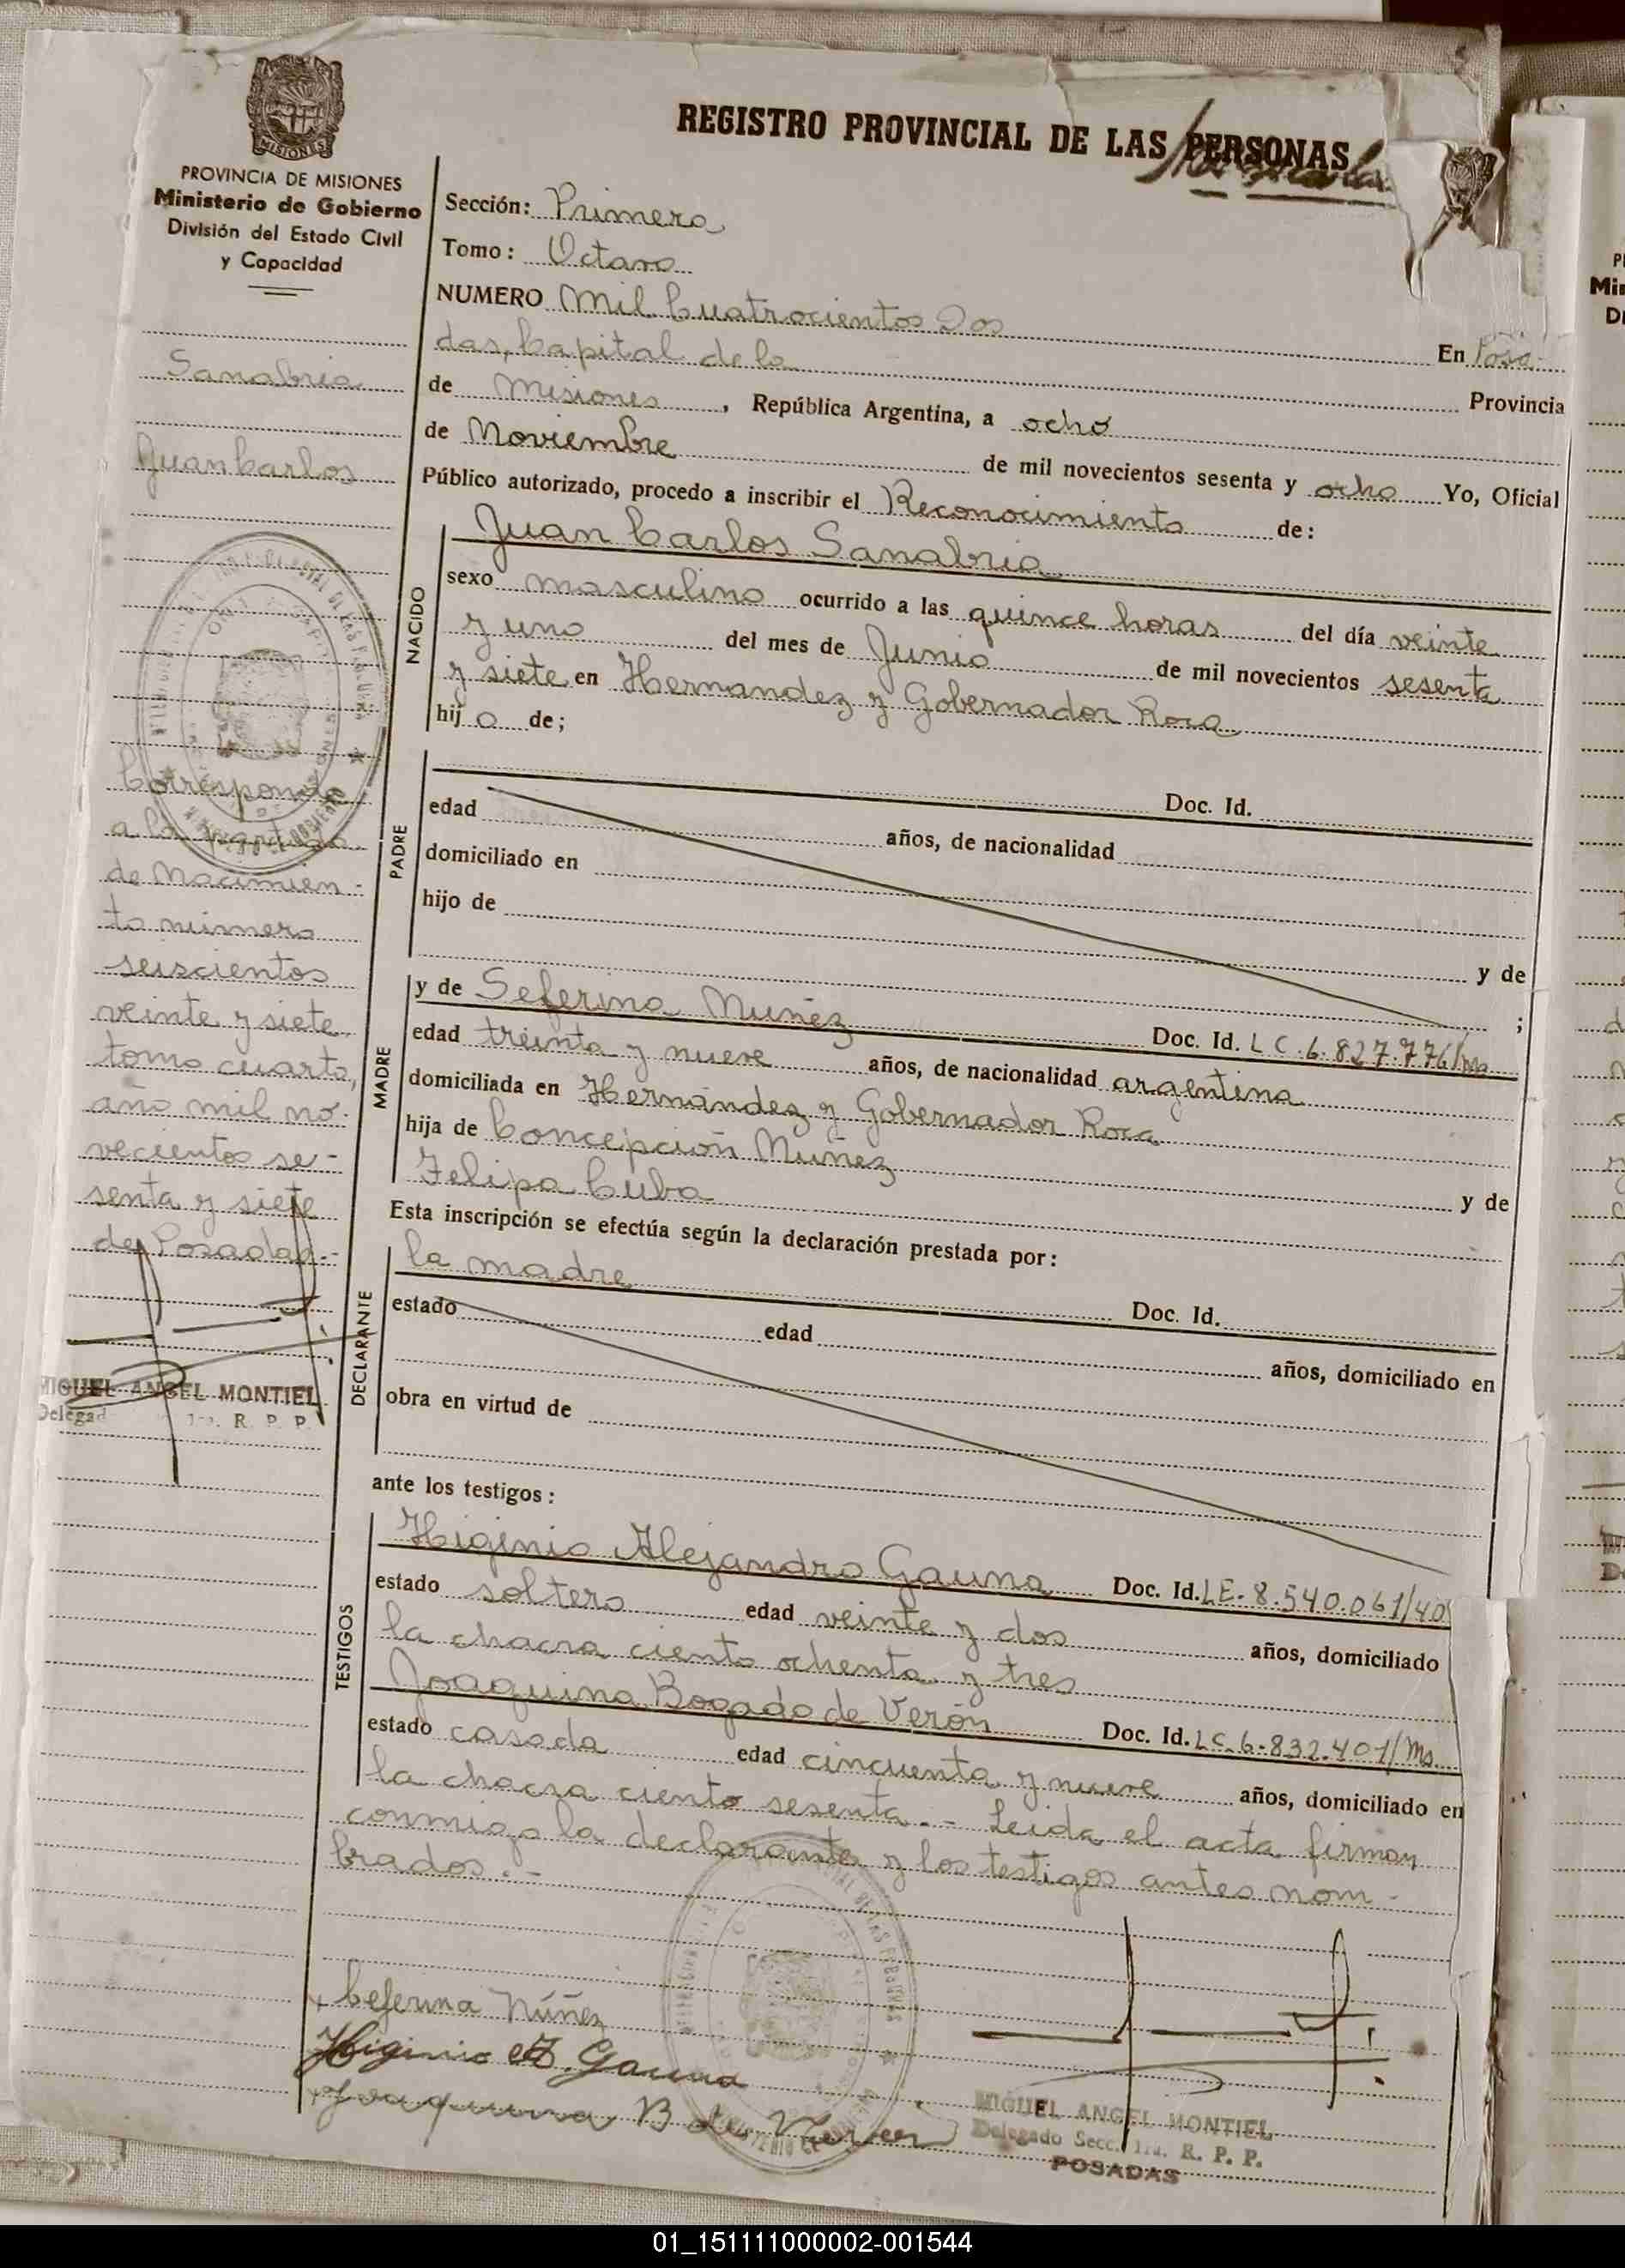 REGISTRO PROVINCIAL DE LAS PERSONAS
MISIONES
PROVINCIA DE MISIONES
Ministerio de Gobierno
División del Estado Civil
y Capacidad
Sanabria
Juan Carlos
Corresponde
a la partida
de Nacimien-
to número
seiscientos
veinte y siete,
tomo cuarto,
año mil no-
vecientos se-
senta y siete
de Posadas.-
MIGUEL ANGEL MONTIEL
Delegad 1ra. R. P. P.
Sección: Primera
Tomo: Octavo
NUMERO Mil Cuatrocientos Dos En Posa-
das, Capital de la Provincia
de Misiones, República Argentina, a ocho
de Noviembre de mil novecientos sesenta y ocho Yo, Oficial
Público autorizado, procedo a inscribir el Reconocimiento de:
NACIDO
Juan Carlos Sanabria
sexo masculino ocurrido a las quince horas del día veinte
y uno del mes de Junio de mil novecientos sesenta
y siete en Hernandez y Gobernador Roca
hijo de;
PADRE
Doc. Id.
edad años, de nacionalidad
domiciliado en
hijo de
y de
;
MADRE
y de Seferina Muñez Doc. Id. L C. 6.827.776/Ms
edad treinta y nueve años, de nacionalidad argentina
domiciliada en Hernández y Gobernador Roca
hija de Concepción Muñez y de
Felipa Cuba
Esta inscripción se efectúa según la declaración prestada por:
DECLARANTE
la madre Doc. Id.
estado edad años, domiciliado en
obra en virtud de
ante los testigos:
TESTIGOS
Higinio Alejandro Gauna Doc. Id. LE. 8.540.061/40
estado soltero edad veinte y dos años, domiciliado
la chacra ciento ochenta y tres
Joaquina Bogado de Verón Doc. Id. LC. 6.832.401/Ms.
estado casada edad cincuenta y nueve años, domiciliado en
la chacra ciento sesenta.- Leida el acta firman
conmigo la declarante y los testigos antes nom-
brados.-
Ceferina Núñez
Higinio A. Gauna
Joaquina B de Veron
MIGUEL ANGEL MONTIEL
Delegado Secc. 1ra. R. P. P.
POSADAS
01_151111000002-001544